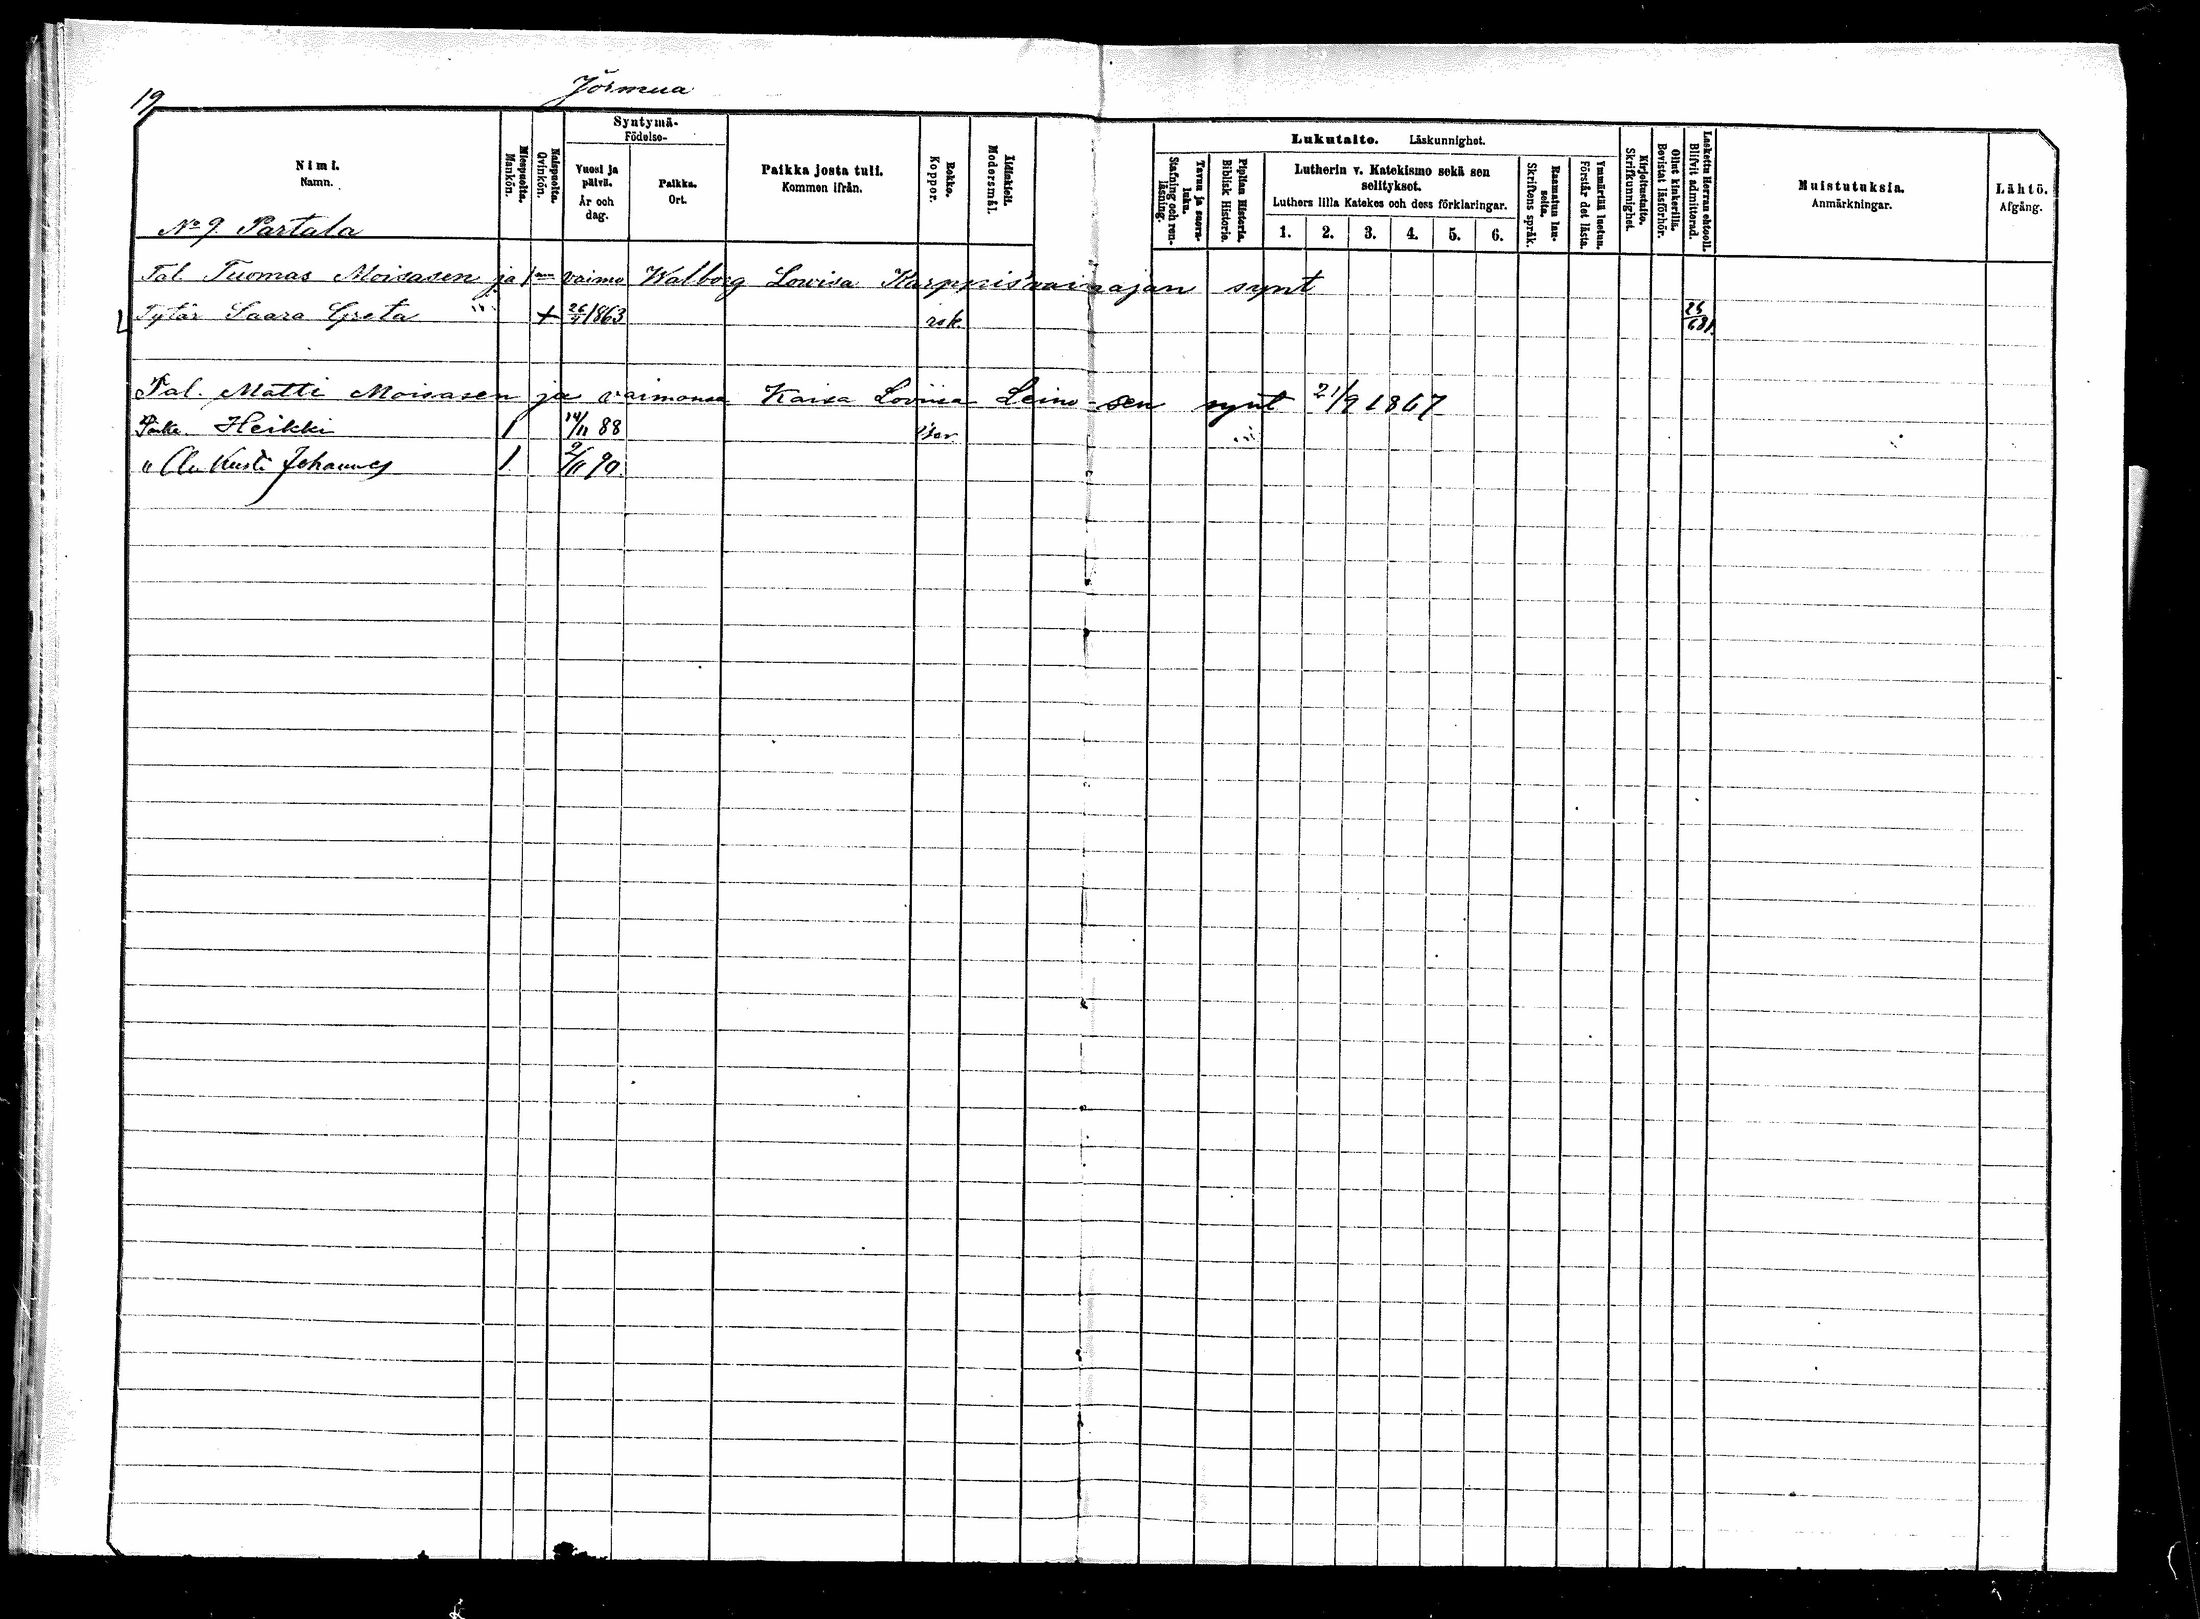 19
Jormua
Nimi.
Namn.
Miespuolia.
Mankön.
Naispuolia.
Qvinkön.
Syntymä-
Födelse-
Vuosi ja päivä.
År och dag.
Paikka.
Ort.
Paikka josta tuli.
Kommen ifrån.
Rokko.
Koppor.
Äidinkieli.
Modersmål.
Lukutaito. Läskunnighet.
Tavuu ja suora-luku.
Stafning och ren-läsning.
Piplian Historia.
Biblisk Historie.
Lutherin v. Katekismo sekä sen selitykset.
Luthers lilla Katekes och dess förklaringar.
1. 2. 3. 4. 5. 6.
Raamatun lau-seita.
Skriftens språk.
Ymmärtää luetun.
Förstår det lästa.
Kirjoitustaito.
Skrifkunnighet.
Ollut kinkerillä.
Bevistat läsförhör.
Laskettu Herran ehtooll.
Blifvit admitterad.
Muistutuksia.
Anmärkningar.
Lähtö.
Afgång.
No 9 Partala
Tal. Tuomas Moisasen ja vaimo Walborg Lowisa synt
Tytär Saara Greta 1863 rok
Tal. Matti Moisasen ja vaimonsa Kaisa Loviisa Leino-sen synt 21/9 1867
Poika Heikki 1 14/11 88
" Kusti Johannes 1 9/11 90